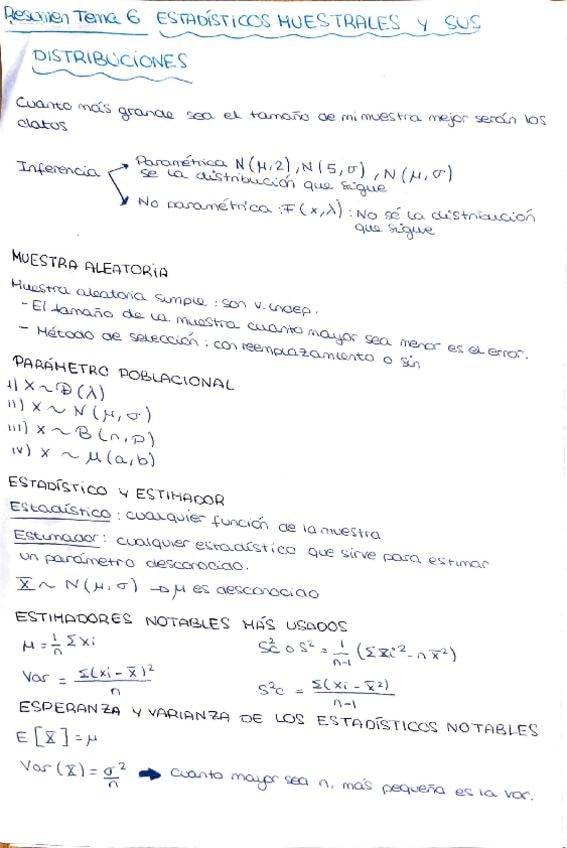 Resumen Tema 6 ESTADÍSTICOS MUESTRALES Y SUS
DISTRIBUCIONES
Cuanto más grande sea el tamaño de mi muestra mejor serán los
datos
Inferencia → Paramétrica N(μ,2), N(5,σ), N(μ,σ)
se la distribución que sigue
→ No paramétrica: F(x,λ): No sé la distribución
que sigue
MUESTRA ALEATORIA
Muestra aleatoria simple: son v. indep.
- El tamaño de la muestra cuanto mayor sea menor es el error.
- Método de selección: con reemplazamiento o sin
PARÁMETRO POBLACIONAL
i) X ~ P(λ)
ii) X ~ N(μ,σ)
iii) X ~ B(n,p)
iv) X ~ μ(a,b)
ESTADÍSTICO Y ESTIMADOR
Estadístico: cualquier función de la muestra
Estimador: cualquier estadístico que sirve para estimar
un parámetro desconocido.
X̄ ~ N(μ,σ) → μ es desconocido
ESTIMADORES NOTABLES MÁS USADOS
μ = 1/n Σxi   Sc² o S² = 1/(n-1) (Σxi² - n x̄²)
Var = Σ(xi - x̄)²/n   S²c = Σ(xi - x̄²)/(n-1)
ESPERANZA Y VARIANZA DE LOS ESTADÍSTICOS NOTABLES
E[X̄] = μ
Var(X̄) = σ²/n → cuanto mayor sea n, más pequeña es la var.